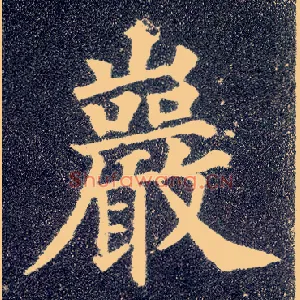 巖
Shufawang.cn